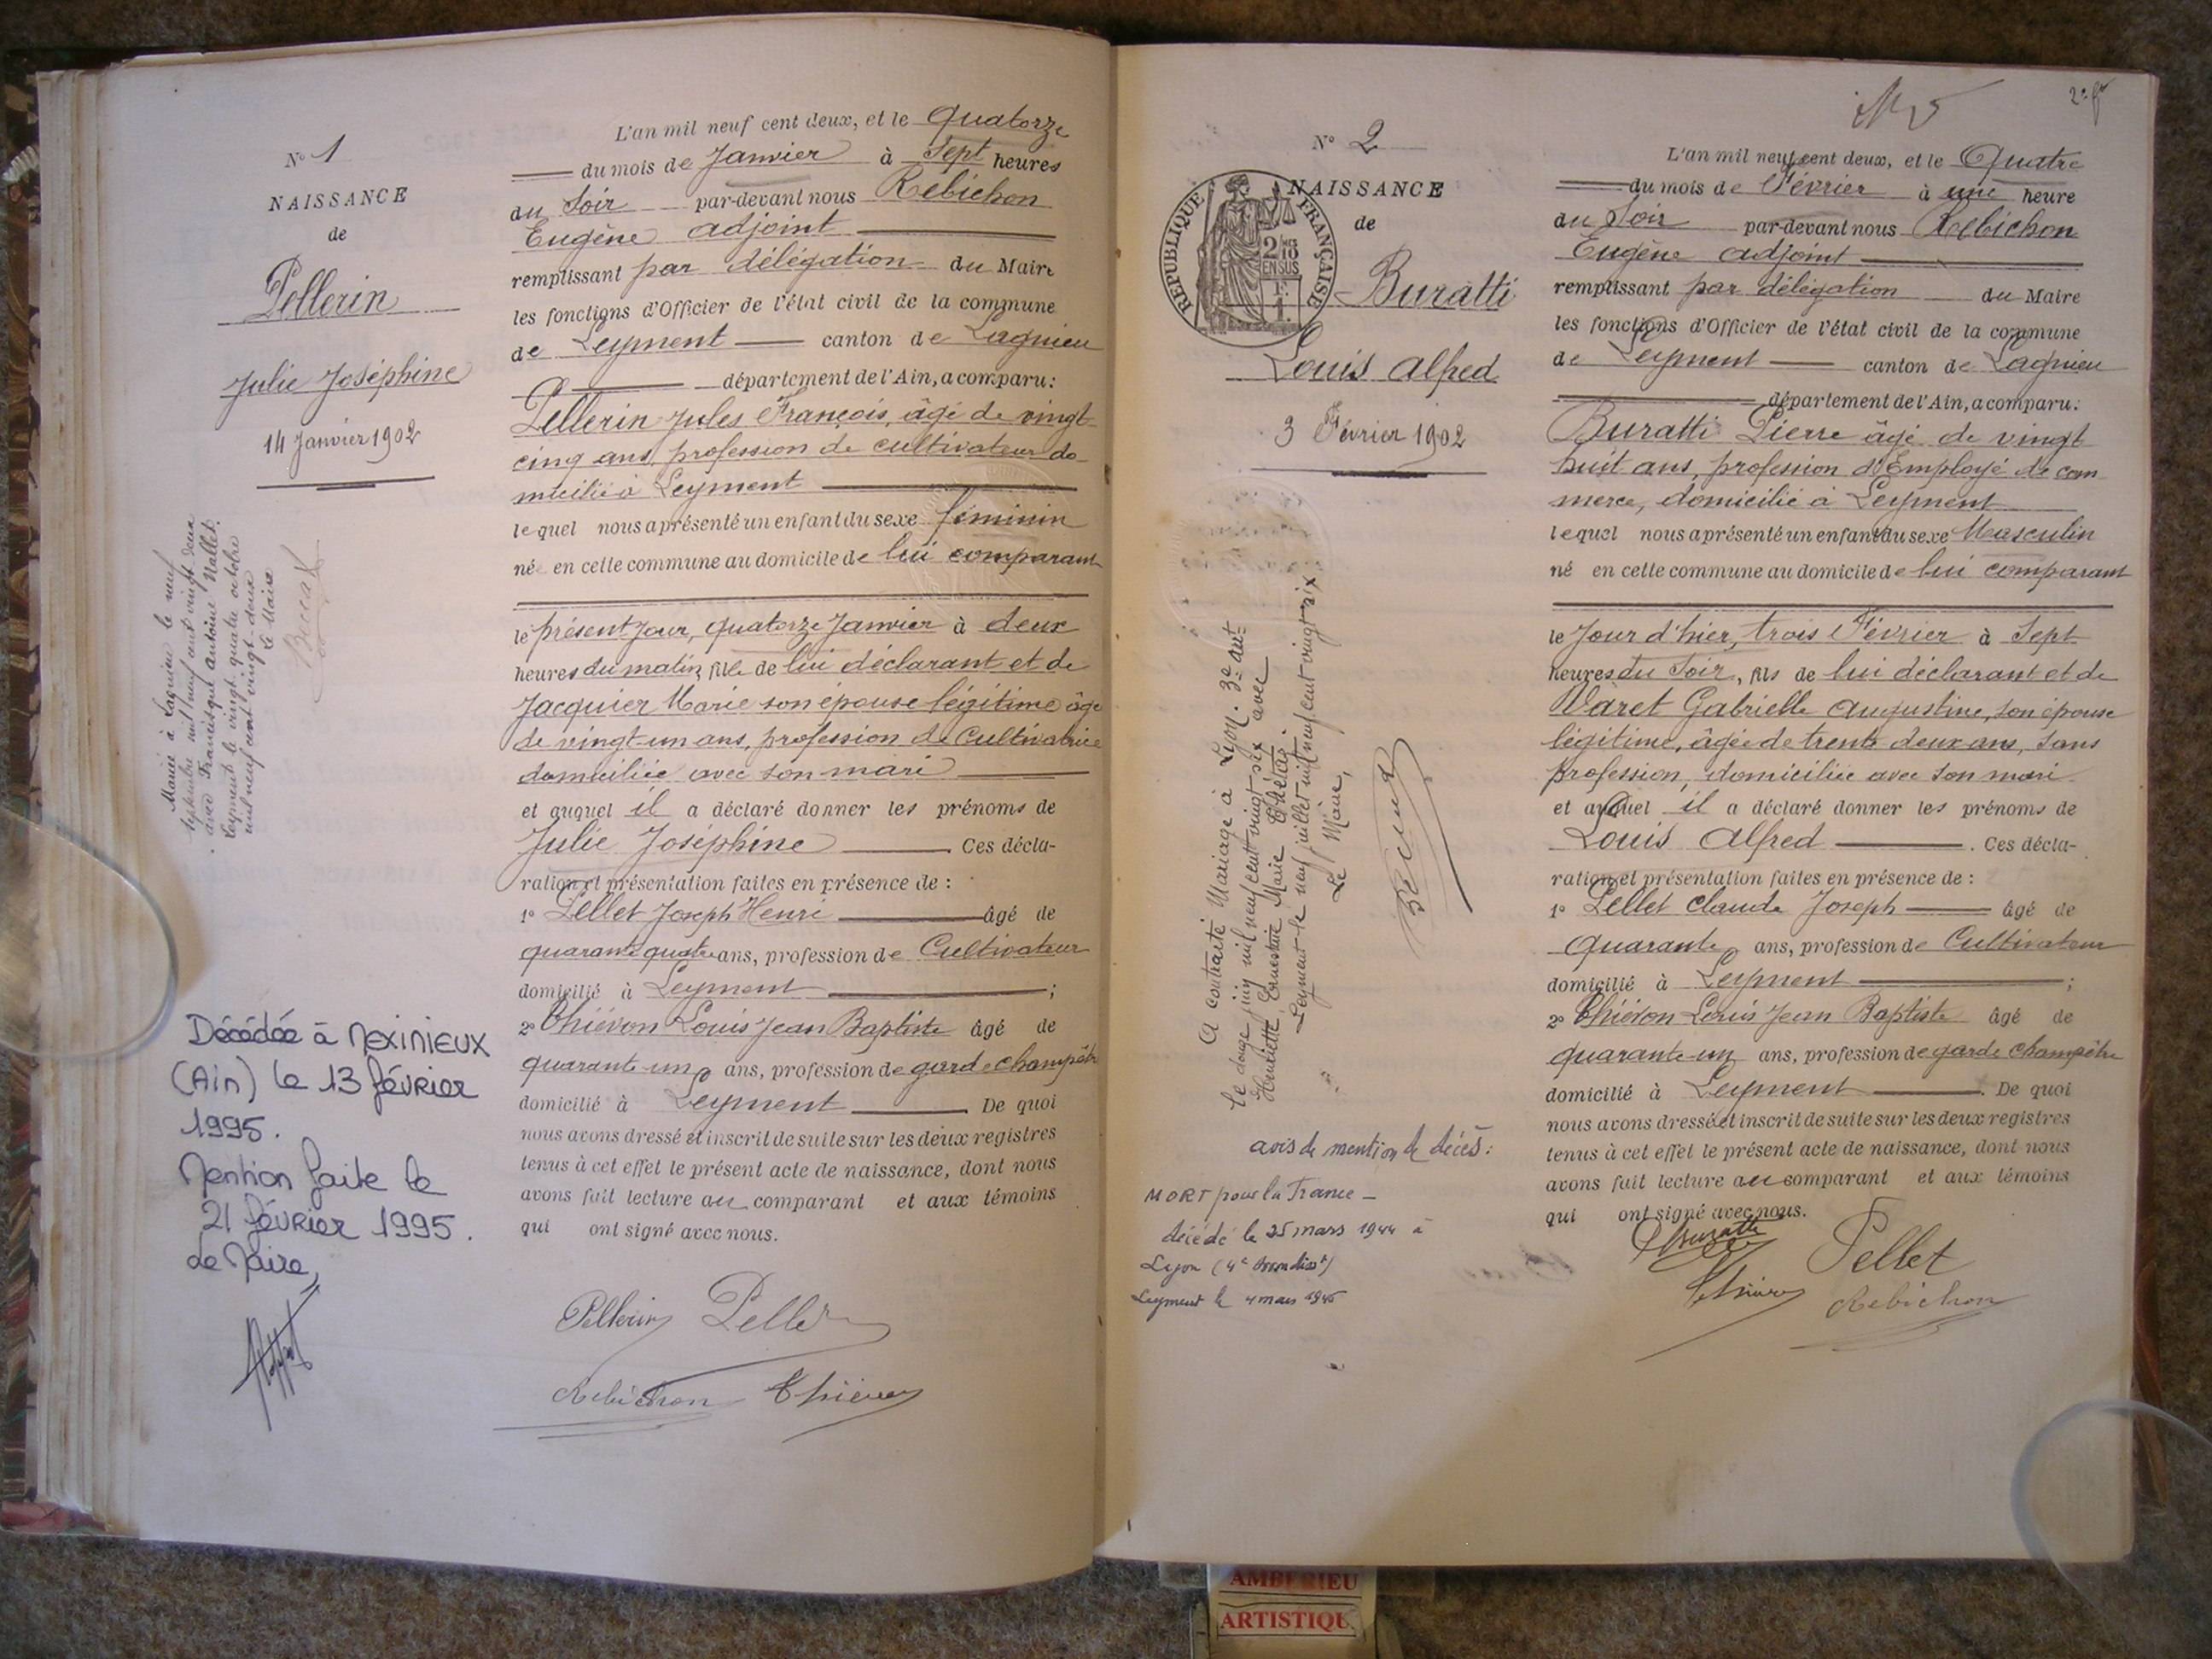 N° 1
NAISSANCE
de
Pellerin
Julie Joséphine
14 Janvier 1902
Mariée à Lagnieu le neuf
septembre mil neuf cent vingt deux
avec Francisque Antoine Nallet.
Leyment le vingt quatre octobre
mil neuf cent vingt deux
Le Maire
Décédée à Meximieux
(Ain) le 13 février
1995.
Mention faite le
21 février 1995.
Le Maire,
L'an mil neuf cent deux, et le Quatorze
du mois de Janvier à Sept heures
du Soir par-devant nous Rebichon
Eugène adjoint
remplissant par délégation du Maire
les fonctions d'Officier de l'état civil de la commune
de Leyment canton de Lagnieu
département de l'Ain, a comparu:
Pellerin Jules François, âgé de vingt
cinq ans, profession de cultivateur do-
micilié à Leyment
lequel nous a présenté un enfant du sexe féminin
née en cette commune au domicile de lui comparant
le présent jour, quatorze Janvier à deux
heures du matin, fille de lui déclarant et de
Jacquier Marie son épouse légitime âgée
de vingt-un ans, profession de Cultivatrice
domiciliée avec son mari
et auquel il a déclaré donner les prénoms de
Julie Joséphine Ces décla-
ration et présentation faites en présence de :
1° Pellet Joseph Henri âgé de
quarante quatre ans, profession de Cultivateur
domicilié à Leyment ;
2° Thiévon Louis Jean Baptiste âgé de
quarante-un ans, profession de garde champêtre
domicilié à Leyment . De quoi
nous avons dressé et inscrit de suite sur les deux registres
tenus à cet effet le présent acte de naissance, dont nous
avons fait lecture au comparant et aux témoins
qui ont signé avec nous.
Pellerin Pellet
Rebichon Thiévon
N° 2
NAISSANCE
de
RÉPUBLIQUE FRANÇAISE
2/10 EN SUS
Buratti
Louis Alfred
3 Février 1902
A contracté Mariage à Lyon. 3e arrt
le douze juin mil neuf cent vingt-six avec
Henriette Ernestine Marie
Leyment le neuf juillet mil neuf cent vingt six
Le Maire,
avis de mention de décès :
MORT pour la France –
décédé le 25 mars 1944 à
Lyon (4e Arrondisst)
Leyment le 4 mars 1945
2e ft
L'an mil neuf cent deux, et le Quatre
du mois de Février à une heure
du Soir par-devant nous Rebichon
Eugène adjoint
remplissant par délégation du Maire
les fonctions d'Officier de l'état civil de la commune
de Leyment canton de Lagnieu
département de l'Ain, a comparu:
Buratti Pierre âgé de vingt
huit ans, profession d'Employé de com
merce, domicilié à Leyment
lequel nous a présenté un enfant du sexe Masculin
né en cette commune au domicile de lui comparant
le Jour d'hier, trois Février à Sept
heures du Soir, fils de lui déclarant et de
Varet Gabrielle Augustine, son épouse
légitime, âgée de trente deux ans, sans
profession, domiciliée avec son mari
et auquel il a déclaré donner les prénoms de
Louis Alfred . Ces décla-
ration et présentation faites en présence de :
1° Pellet Claude Joseph âgé de
Quarante ans, profession de Cultivateur
domicilié à Leyment ;
2° Thiévon Louis Jean Baptiste âgé de
quarante-un ans, profession de garde champêtre
domicilié à Leyment . De quoi
nous avons dressé et inscrit de suite sur les deux registres
tenus à cet effet le présent acte de naissance, dont nous
avons fait lecture au comparant et aux témoins
qui ont signé avec nous.
Buratti Pellet
Thiévon Rebichon
AMBERIEU
ARTISTIQU